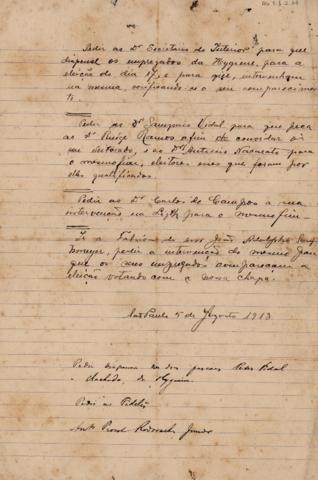 Pedir ao Dr Secretario do Interior para que
dispense os empregados da Hygiene, para a
eleição do dia 17, e para que, intervenham
na mesma, verificando-se o seu comparecimen-
to.
Pedir ao Dr Sampaio Vidal para que peça
ao Dr Ruige Ramos afim de convidar os
seu eleitorado, e ao Dr Antonio Nacarato para
o mesmo fim, eleitores esses que foram por
elles qualificados.
Pedir ao Dr Carlos de Campos a sua
intervenção na para o mesmo fim.
Ir a Fabrica do snr João Adolpho
pedir a intervenção do mesmo para
que os seus empregados compareçam a
eleição votando com a nossa chapa.
São Paulo 5 de Agosto 1913
Pedir dispensa dos Pedro Vidal
e Machado, da Hygiene.
Pedir ao Fidelis
Antº Proost Rodovalho Junior